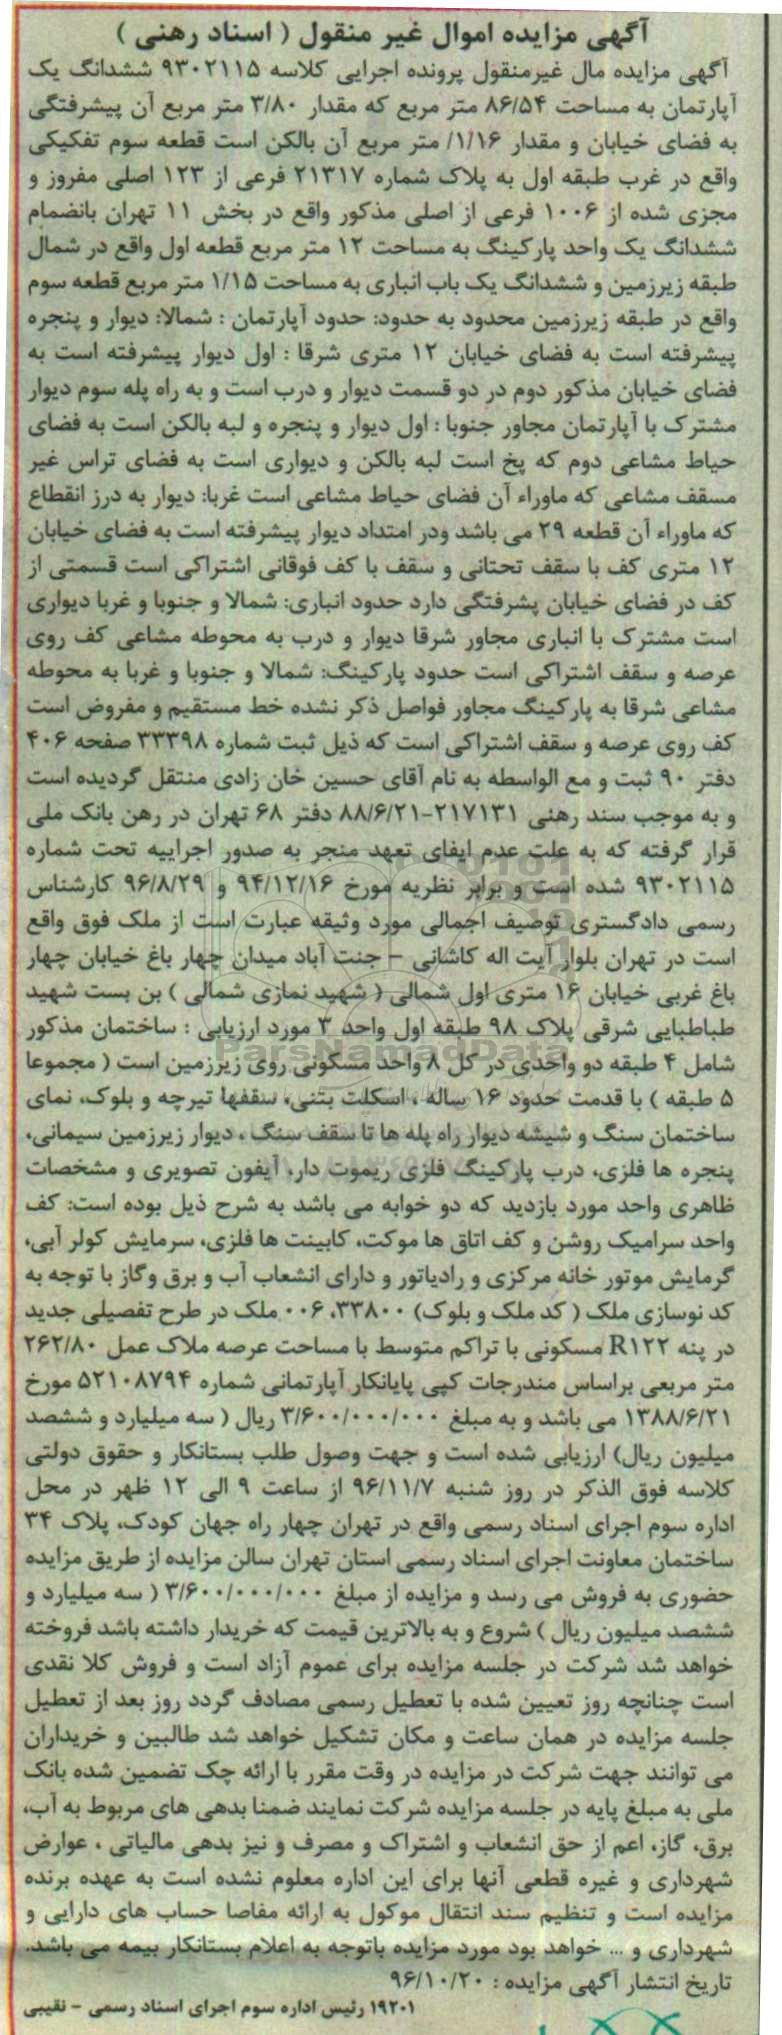 آگهی مزایده اموال غیر منقول ( اسناد رهنی )
آگهی مزایده مال غیرمنقول پرونده اجرایی کلاسه ۹۳۰۲۱۱۵ ششدانگ یک
آپارتمان به مساحت ۸۶/۵۴ متر مربع که مقدار ۳/۸۰ متر مربع آن پیشرفتگی
به فضای خیابان و مقدار ۱/۱۶/ متر مربع آن بالکن است قطعه سوم تفکیکی
واقع در غرب طبقه اول به پلاک شماره ۲۱۳۱۷ فرعی از ۱۲۳ اصلی مفروز و
مجزی شده از ۱۰۰۶ فرعی از اصلی مذکور واقع در بخش ۱۱ تهران بانضمام
ششدانگ یک واحد پارکینگ به مساحت ۱۲ متر مربع قطعه اول واقع در شمال
طبقه زیرزمین و ششدانگ یک باب انباری به مساحت ۱/۱۵ متر مربع قطعه سوم
واقع در طبقه زیرزمین محدود به حدود: حدود آپارتمان : شمالا: دیوار و پنجره
پیشرفته است به فضای خیابان ۱۲ متری شرقا : اول دیوار پیشرفته است به
فضای خیابان مذکور دوم در دو قسمت دیوار و درب است و به راه پله سوم دیوار
مشترک با آپارتمان مجاور جنوبا : اول دیوار و پنجره و لبه بالکن است به فضای
حیاط مشاعی دوم که پخ است لبه بالکن و دیواری است به فضای تراس غیر
مسقف مشاعی که ماوراء آن فضای حیاط مشاعی است غربا: دیوار به درز انقطاع
که ماوراء آن قطعه ۲۹ می باشد ودر امتداد دیوار پیشرفته است به فضای خیابان
۱۲ متری کف با سقف تحتانی و سقف با کف فوقانی اشتراکی است قسمتی از
کف در فضای خیابان پشرفتگی دارد حدود انباری: شمالا و جنوبا و غربا دیواری
است مشترک با انباری مجاور شرقا دیوار و درب به محوطه مشاعی کف روی
عرصه و سقف اشتراکی است حدود پارکینگ: شمالا و جنوبا و غربا به محوطه
مشاعی شرقا به پارکینگ مجاور فواصل ذکر نشده خط مستقیم و مفروض است
کف روی عرصه و سقف اشتراکی است که ذیل ثبت شماره ۳۳۳۹۸ صفحه ۴۰۶
دفتر ۹۰ ثبت و مع الواسطه به نام آقای حسین خان زادی منتقل گردیده است
و به موجب سند رهنی ۲۱۷۱۳۱-۸۸/۶/۲۱ دفتر ۶۸ تهران در رهن بانک ملی
قرار گرفته که به علت عدم ایفای تعهد منجر به صدور اجراییه تحت شماره
۹۳۰۲۱۱۵ شده است و برابر نظریه مورخ ۹۴/۱۲/۱۶ و ۹۶/۸/۲۹ کارشناس
رسمی دادگستری توصیف اجمالی مورد وثیقه عبارت است از ملک فوق واقع
است در تهران بلوار آیت اله کاشانی – جنت آباد میدان چهار باغ خیابان چهار
باغ غربی خیابان ۱۶ متری اول شمالی ( شهید نمازی شمالی ) بن بست شهید
طباطبایی شرقی پلاک ۹۸ طبقه اول واحد ۳ مورد ارزیابی : ساختمان مذکور
شامل ۴ طبقه دو واحدی در کل ۸ واحد مسکونی روی زیرزمین است ( مجموعا
۵ طبقه ) با قدمت حدود ۱۶ ساله ، اسکلت بتنی، سقفها تیرچه و بلوک، نمای
ساختمان سنگ و شیشه دیوار راه پله ها تا سقف سنگ ، دیوار زیرزمین سیمانی،
پنجره ها فلزی، درب پارکینگ فلزی ریموت دار، آیفون تصویری و مشخصات
ظاهری واحد مورد بازدید که دو خوابه می باشد به شرح ذیل بوده است: کف
واحد سرامیک روشن و کف اتاق ها موکت، کابینت ها فلزی، سرمایش کولر آبی،
گرمایش موتور خانه مرکزی و رادیاتور و دارای انشعاب آب و برق وگاز با توجه به
کد نوسازی ملک ( کد ملک و بلوک) ۳۳۸۰۰، ۰۰۶ ملک در طرح تفصیلی جدید
در پنه R۱۲۲ مسکونی با تراکم متوسط با مساحت عرصه ملاک عمل ۲۶۲/۸۰
متر مربعی براساس مندرجات کپی پایانکار آپارتمانی شماره ۵۲۱۰۸۷۹۴ مورخ
۱۳۸۸/۶/۲۱ می باشد و به مبلغ ۳/۶۰۰/۰۰۰/۰۰۰ ریال ( سه میلیارد و ششصد
میلیون ریال) ارزیابی شده است و جهت وصول طلب بستانکار و حقوق دولتی
کلاسه فوق الذکر در روز شنبه ۹۶/۱۱/۷ از ساعت ۹ الی ۱۲ ظهر در محل
اداره سوم اجرای اسناد رسمی واقع در تهران چهار راه جهان کودک، پلاک ۳۴
ساختمان معاونت اجرای اسناد رسمی استان تهران سالن مزایده از طریق مزایده
حضوری به فروش می رسد و مزایده از مبلغ ۳/۶۰۰/۰۰۰/۰۰۰ ( سه میلیارد و
ششصد میلیون ریال ) شروع و به بالاترین قیمت که خریدار داشته باشد فروخته
خواهد شد شرکت در جلسه مزایده برای عموم آزاد است و فروش کلا نقدی
است چنانچه روز تعیین شده با تعطیل رسمی مصادف گردد روز بعد از تعطیل
جلسه مزایده در همان ساعت و مکان تشکیل خواهد شد طالبین و خریداران
می توانند جهت شرکت در مزایده در وقت مقرر با ارائه چک تضمین شده بانک
ملی به مبلغ پایه در جلسه مزایده شرکت نمایند ضمنا بدهی های مربوط به آب،
برق، گاز، اعم از حق انشعاب و اشتراک و مصرف و نیز بدهی مالیاتی ، عوارض
شهرداری و غیره قطعی آنها برای این اداره معلوم نشده است به عهده برنده
مزایده است و تنظیم سند انتقال موکول به ارائه مفاصا حساب های دارایی و
شهرداری و ... خواهد بود مورد مزایده باتوجه به اعلام بستانکار بیمه می باشد.
تاریخ انتشار آگهی مزایده : ۹۶/۱۰/۲۰
۱۹۲۰۱ رئیس اداره سوم اجرای اسناد رسمی - نقیبی
ParsNamadData